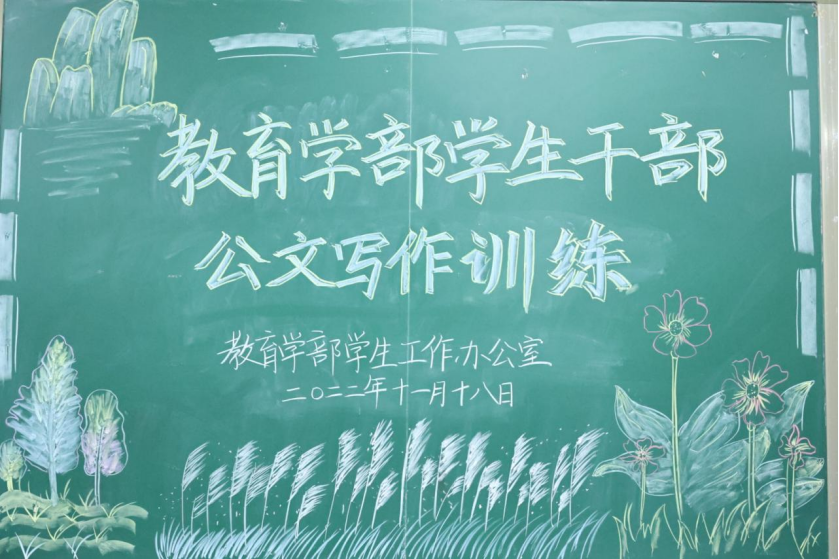 教育学部学生干部
公文写作训练
教育学部学生工作办公室
二〇二二年十一月十八日